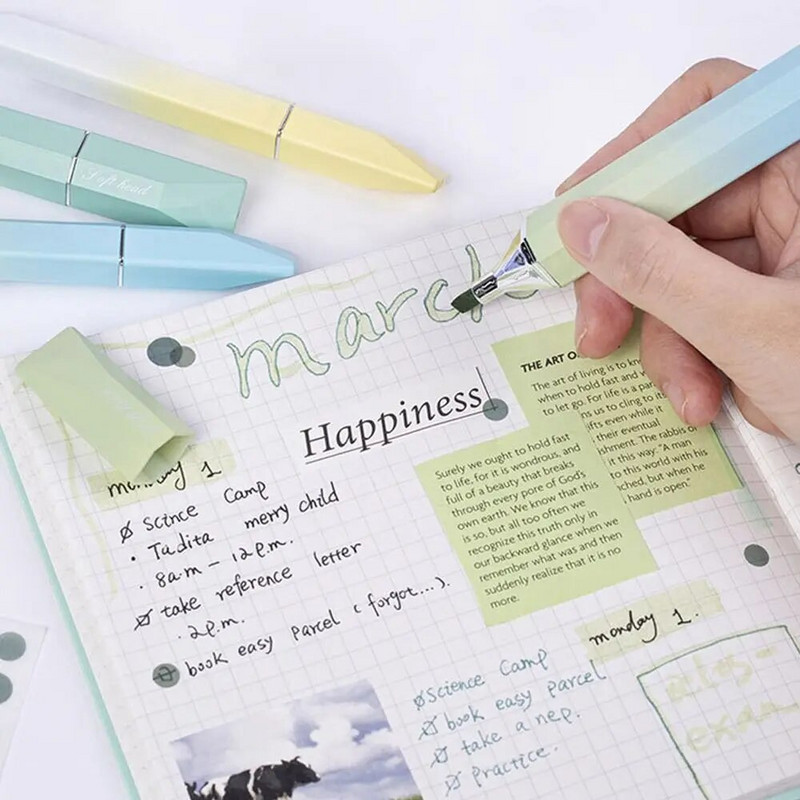 Soft head
march
THE ART O
The art of living is to kn
when to hold fast and w
to let go. For life is a par
ns us to cling to its
fts even while it
their eventual
shment. The rabbis o
it this way: "A man
to this world with his
ched, but when he
hand is open."
Happiness
Surely we ought to hold fast
to life, for it is wondrous, and
full of a beauty that breaks
through every pore of God's
own earth. We know that this
is so, but all too often we
recognize this truth only in
our backward glance when we
remember what was and then
suddenly realize that it is no
more.
monday 1
Scince Camp
· Tadita merry child
· 8a·m - 12p.m.
take reference letter
· 2p.m.
book easy parcel (forgot...).
monday 1.
Science Camp
book easy parcel
take a nep.
practice.
exam